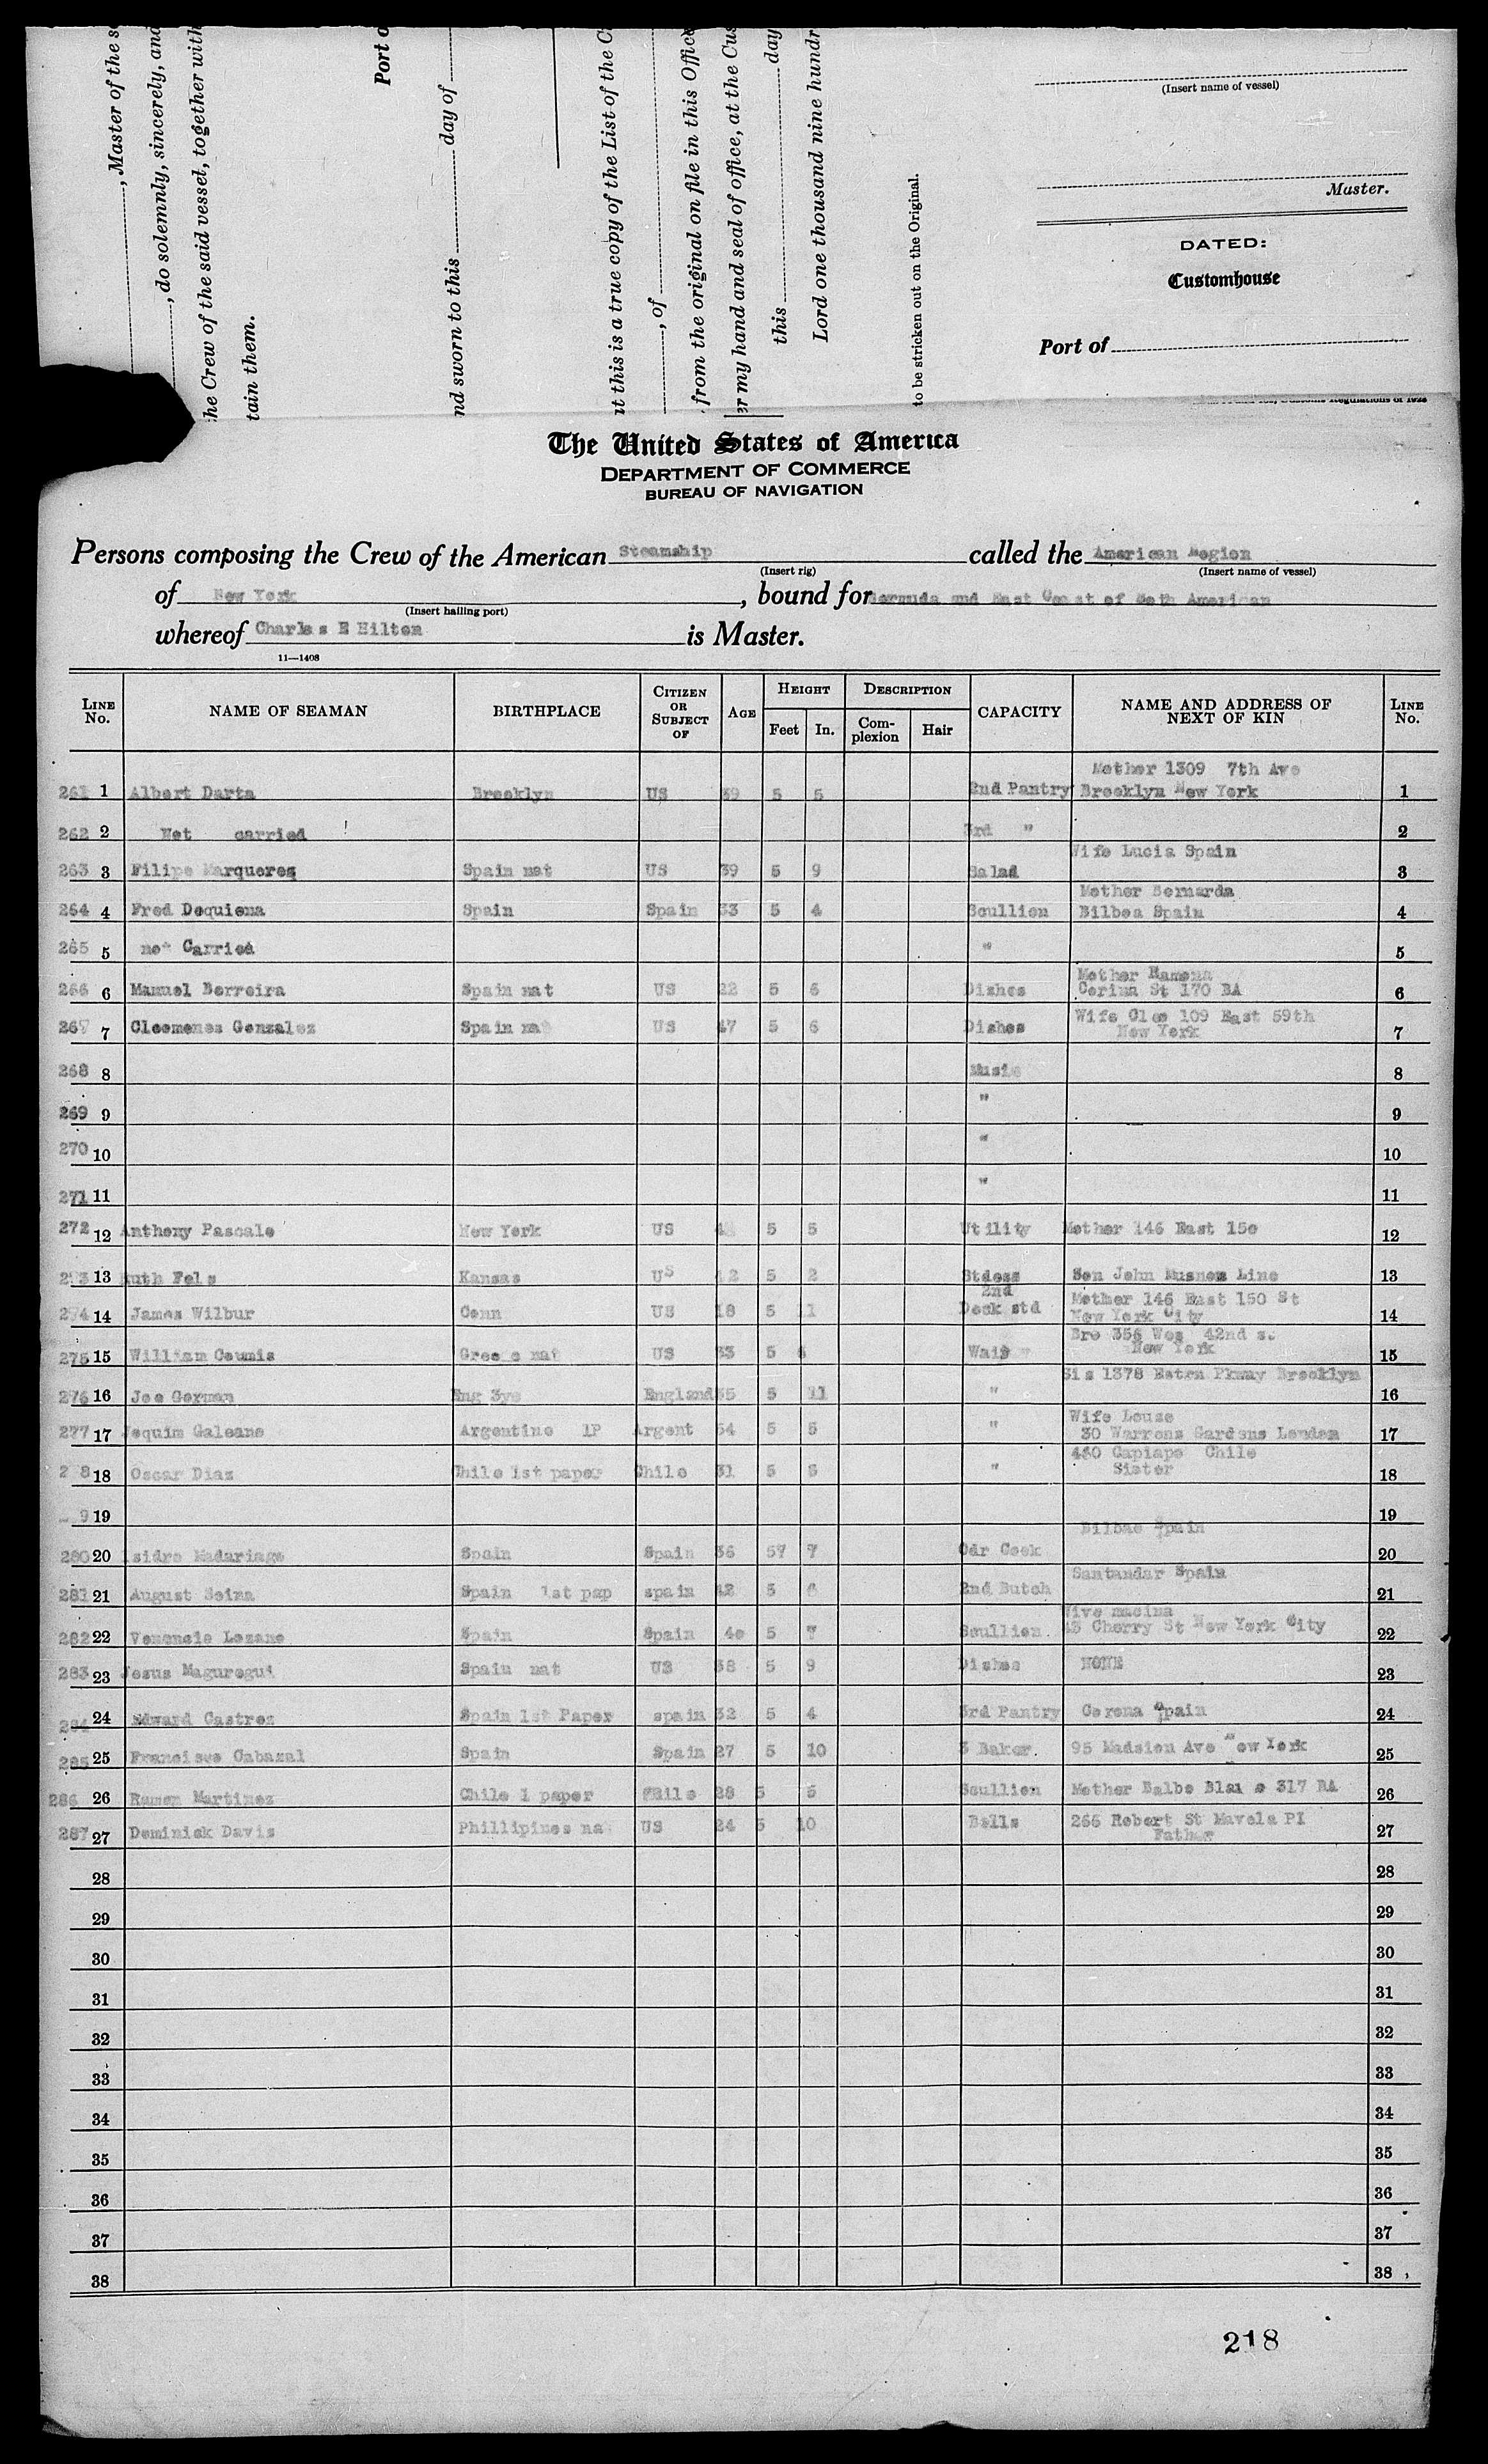 , Master of the
, do solemnly, sincerely, and
he Crew of the said vessel, together with
tain them.
Port
nd sworn to this day of
t this is a true copy of the List of the
, of
from the original on file in this Office
er my hand and seal of office, at the Cus
this day
Lord one thousand nine hundr
to be stricken out on the Original.
(Insert name of vessel)
Master.
DATED:
Customhouse
Port of
The United States of America
DEPARTMENT OF COMMERCE
BUREAU OF NAVIGATION
Persons composing the Crew of the American Steamship called the American Legion
(Insert rig) (Insert name of vessel)
of New York, bound for Bermuda and East Coast of American
(Insert hailing port)
whereof Charles E Hilton is Master.
11—1408
LINE No. NAME OF SEAMAN BIRTHPLACE CITIZEN OR SUBJECT OF AGE HEIGHT Feet In. DESCRIPTION Complexion Hair CAPACITY NAME AND ADDRESS OF NEXT OF KIN LINE No.
Mother 1309 7th Ave
261 1 Albert Darta Brooklyn US 39 5 5 2nd Pantry Brooklyn New York 1
262 2 Not carried 3rd " 2
Wife Lucia Spain
263 3 Filipe Marqueres Spain nat US 39 5 9 Salad 3
Mother Bernarda
264 4 Fred Dequiena Spain Spain 33 5 4 Scullion Bilboa Spain 4
265 5 not Carried " 5
Mother Ramona
266 6 Manuel Berreira Spain nat US 22 5 6 Dishes Corina St 170 BA 6
Wife Cleo 109 East 59th
267 7 Cleemenes Gonzalez Spain na US 47 5 6 Dishes New York 7
268 8 Music 8
269 9 " 9
270 10 " 10
271 11 " 11
272 12 Anthony Pascale New York US 5 5 Utility Mother 146 East 150 12
273 13 Ruth Fels Kansas US 42 5 2 Stdess Son John Munson Line 13
2nd Mother 146 East 150 St
274 14 James Wilbur Conn US 18 5 11 Deck std New York City 14
Bro 356 Wes 42nd
275 15 William Counis Greece nat US 33 5 Wait New York 15
Sis 1378 Eatrn Pkway Brooklyn
276 16 Joe Gorman Eng 3ys England 35 5 11 " 16
Wife Louse
277 17 Jequim Galeano Argentine 1P Argent 54 5 5 " 30 Warrens Gardens London 17
450 Capiapo Chile
278 18 Oscar Diaz Chile 1st paper Chile 31 5 5 " Sister 18
9 19 19
Bilbao Spain
280 20 Isidro Madariaga Spain Spain 36 57 7 Cdr Cook 20
Santandar Spain
281 21 August Seina Spain 1st pap spain 42 5 6 2nd Butch 21
Wive
282 22 Venencio Lozano Spain Spain 40 5 7 Scullion 45 Cherry St New York City 22
283 23 Jesus Maguregui Spain nat US 38 5 9 Dishes NONE 23
284 24 Edward Castrez Spain 1st Paper spain 32 5 4 3rd Pantry Corona Spain 24
285 25 Francisco Cabazal Spain Spain 27 5 10 3 Baker. 95 Madsion Ave New York 25
286 26 Ramon Martinez Chile 1 paper Chile 28 5 5 Scullion Mother Balbo 317 BA 26
287 27 Dominick Davis Phillipines na US 24 5 10 Bells 266 Robert St Mavela PI 27
Father
28 28
29 29
30 30
31 31
32 32
33 33
34 34
35 35
36 36
37 37
38 38
218